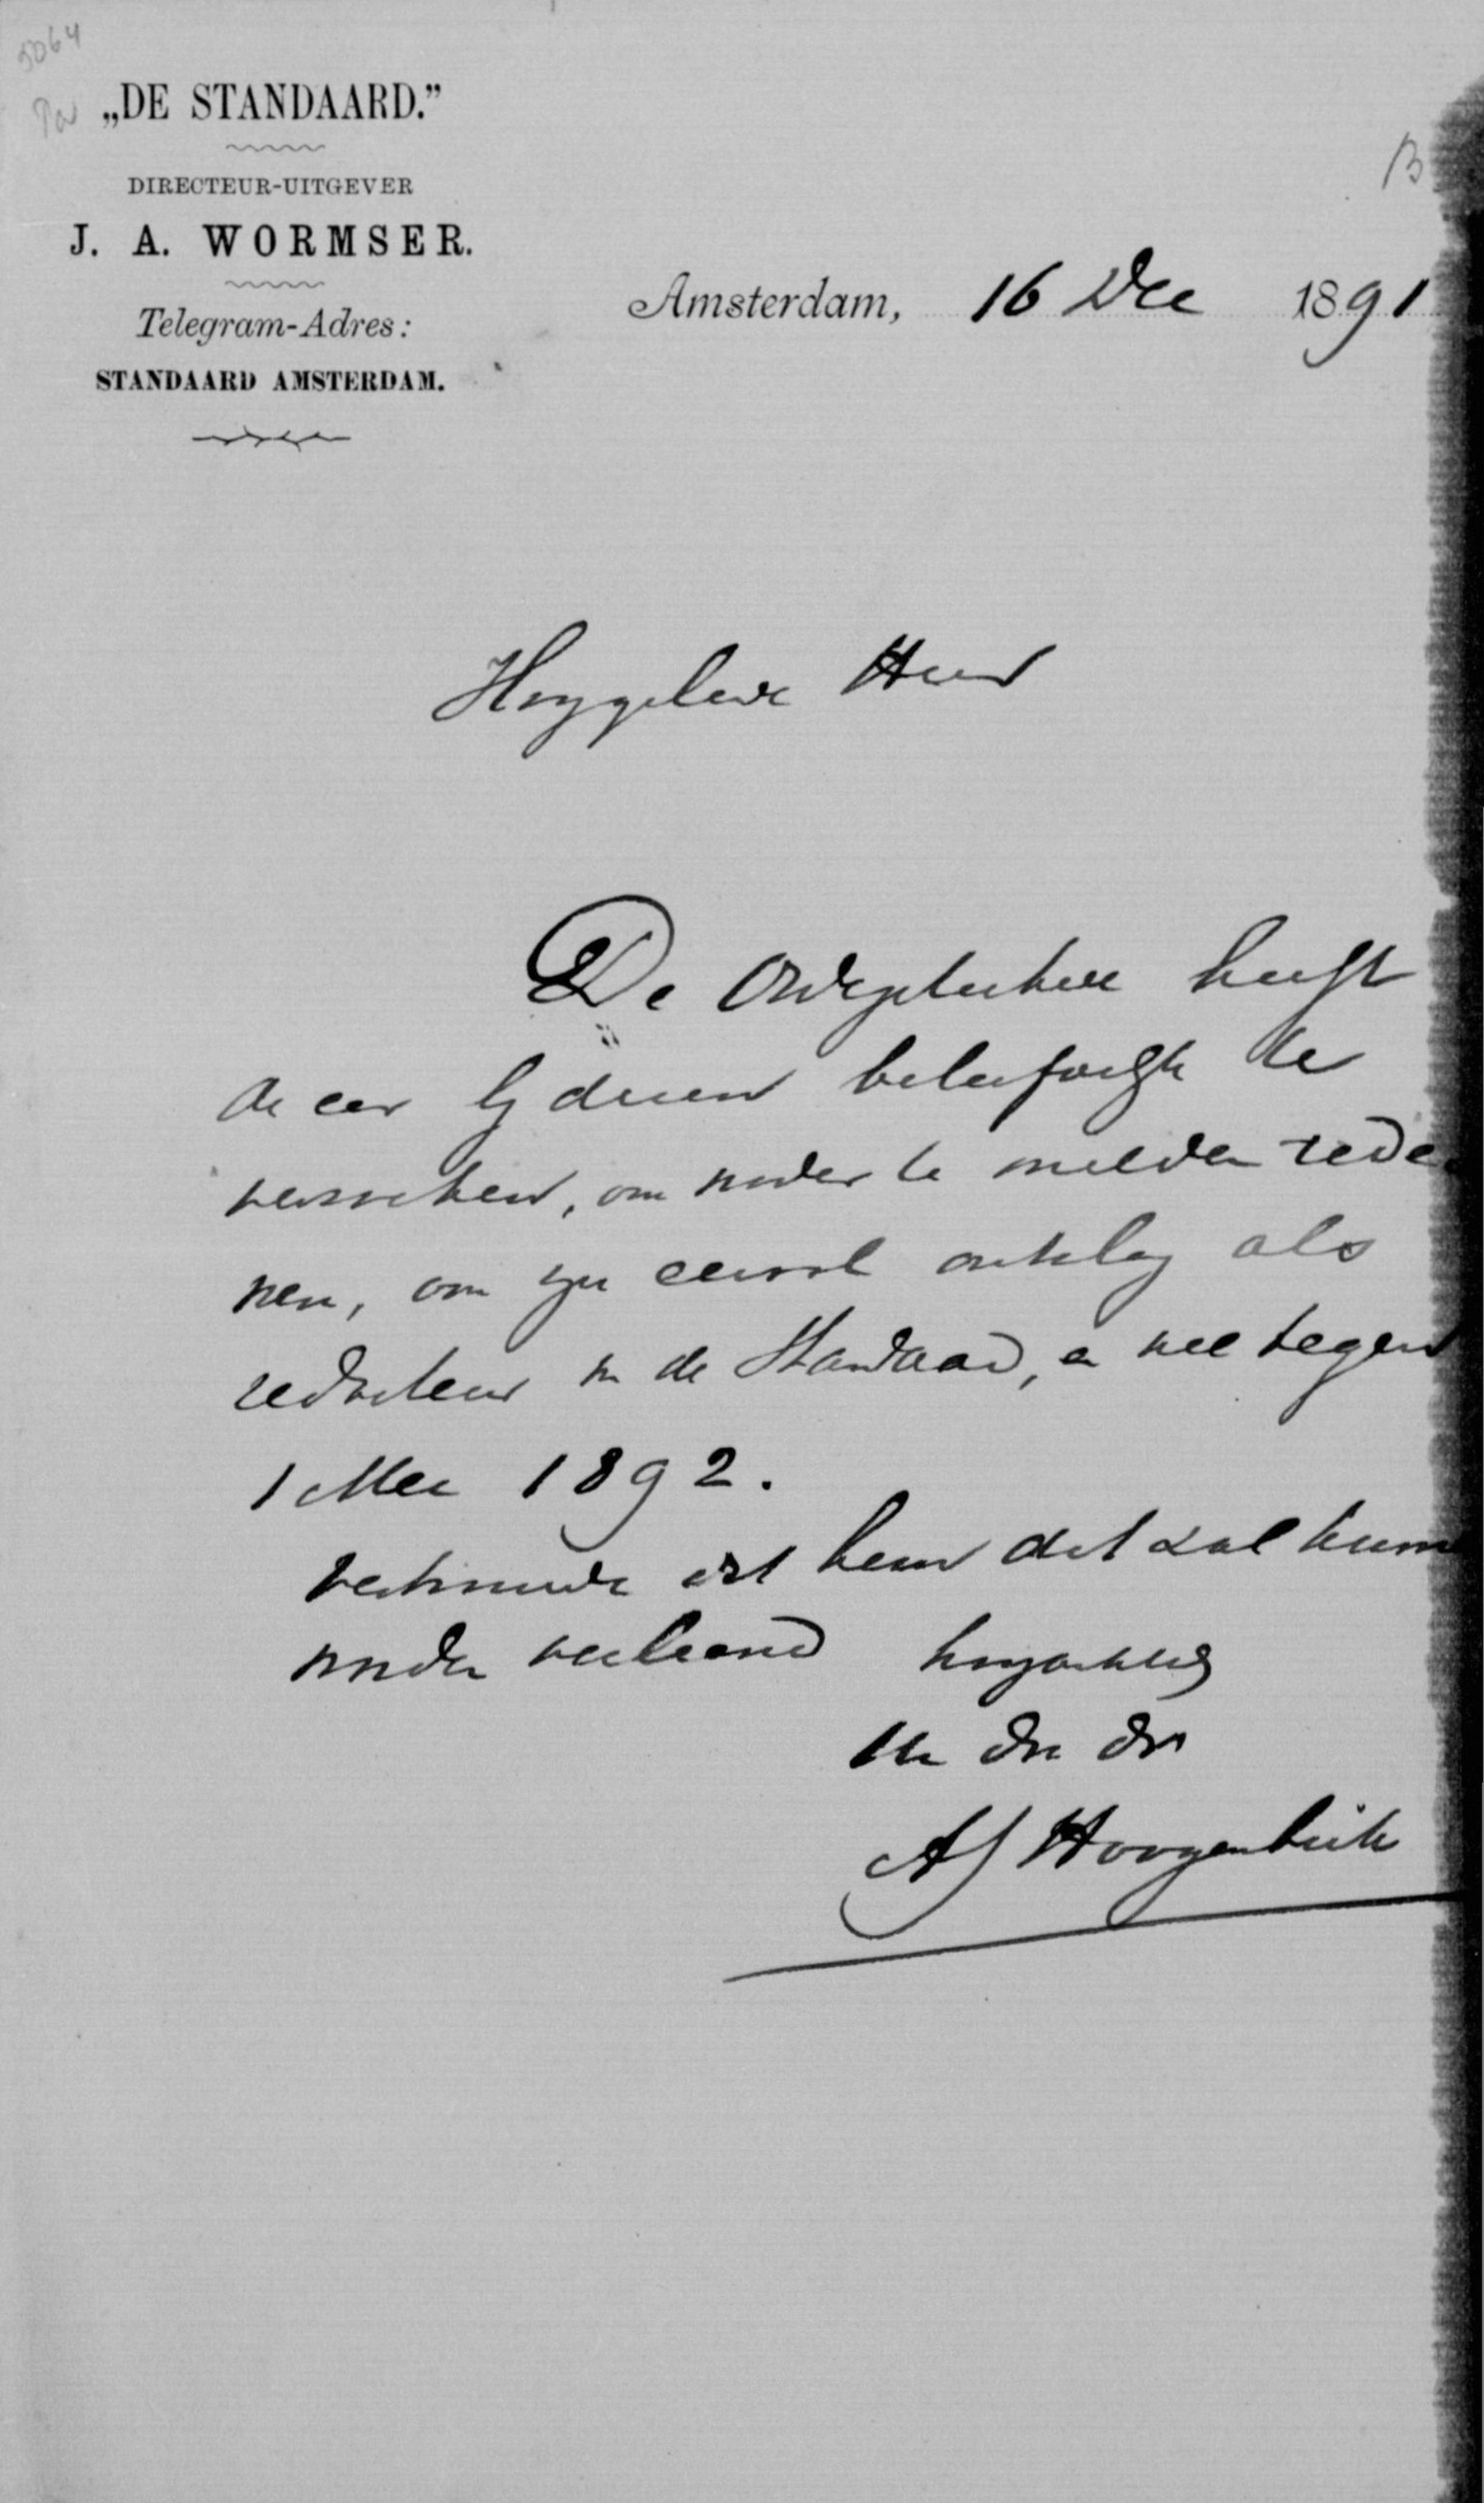 5064
„DE STANDAARD.”
DIRECTEUR-UITGEVER
J. A. WORMSER.
Telegram-Adres:
STANDAARD AMSTERDAM.
B
Amsterdam, 16 Dec 1891
Hooggeleerde Heer
De Ondergeteekende heeft
de eer bij dezen beleefdelijk te
verzoeken, om nader te melden rede
nen, om zijn eervol ontslag als
redacteur van de Standaard, en wel tegen
1 Mei 1892.
Vertrouwende dat hem dit zal kunnen
worden verleend hoogachtend
Uw dw dr
AJ Hoogenbirk